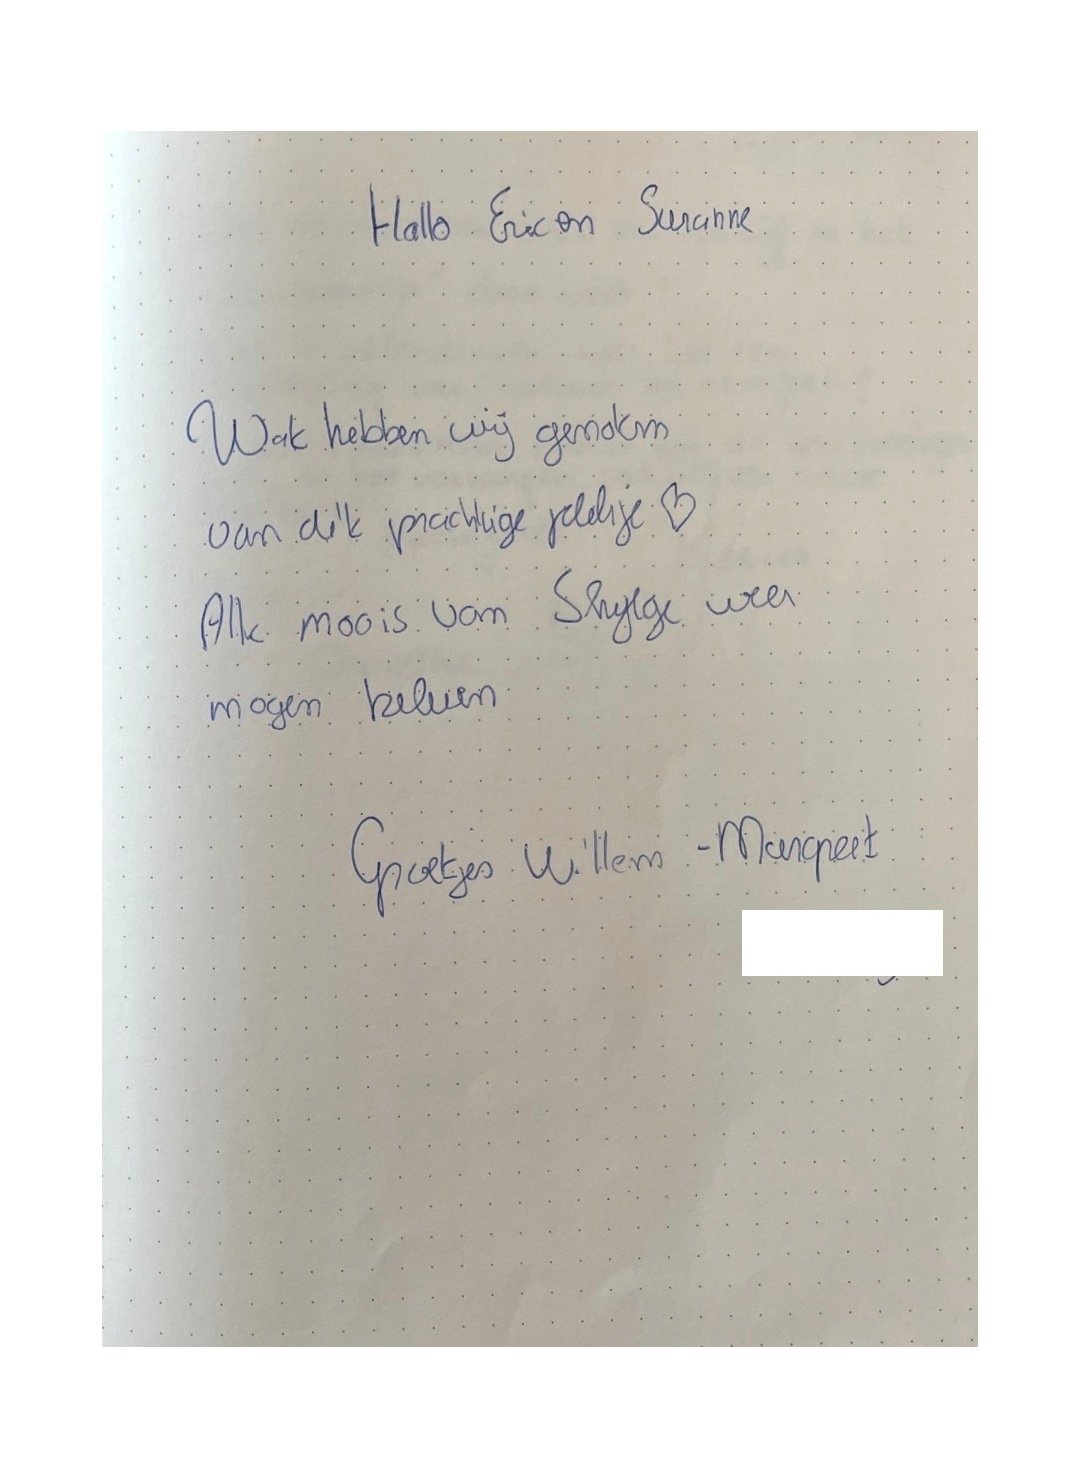 Hallo Eric en Suzanne
Wat hebben wij genoten
van dit prachtige plekje ♡
Alle moois van Skylge weer
mogen beleven
Groetjes Willem - Margreet